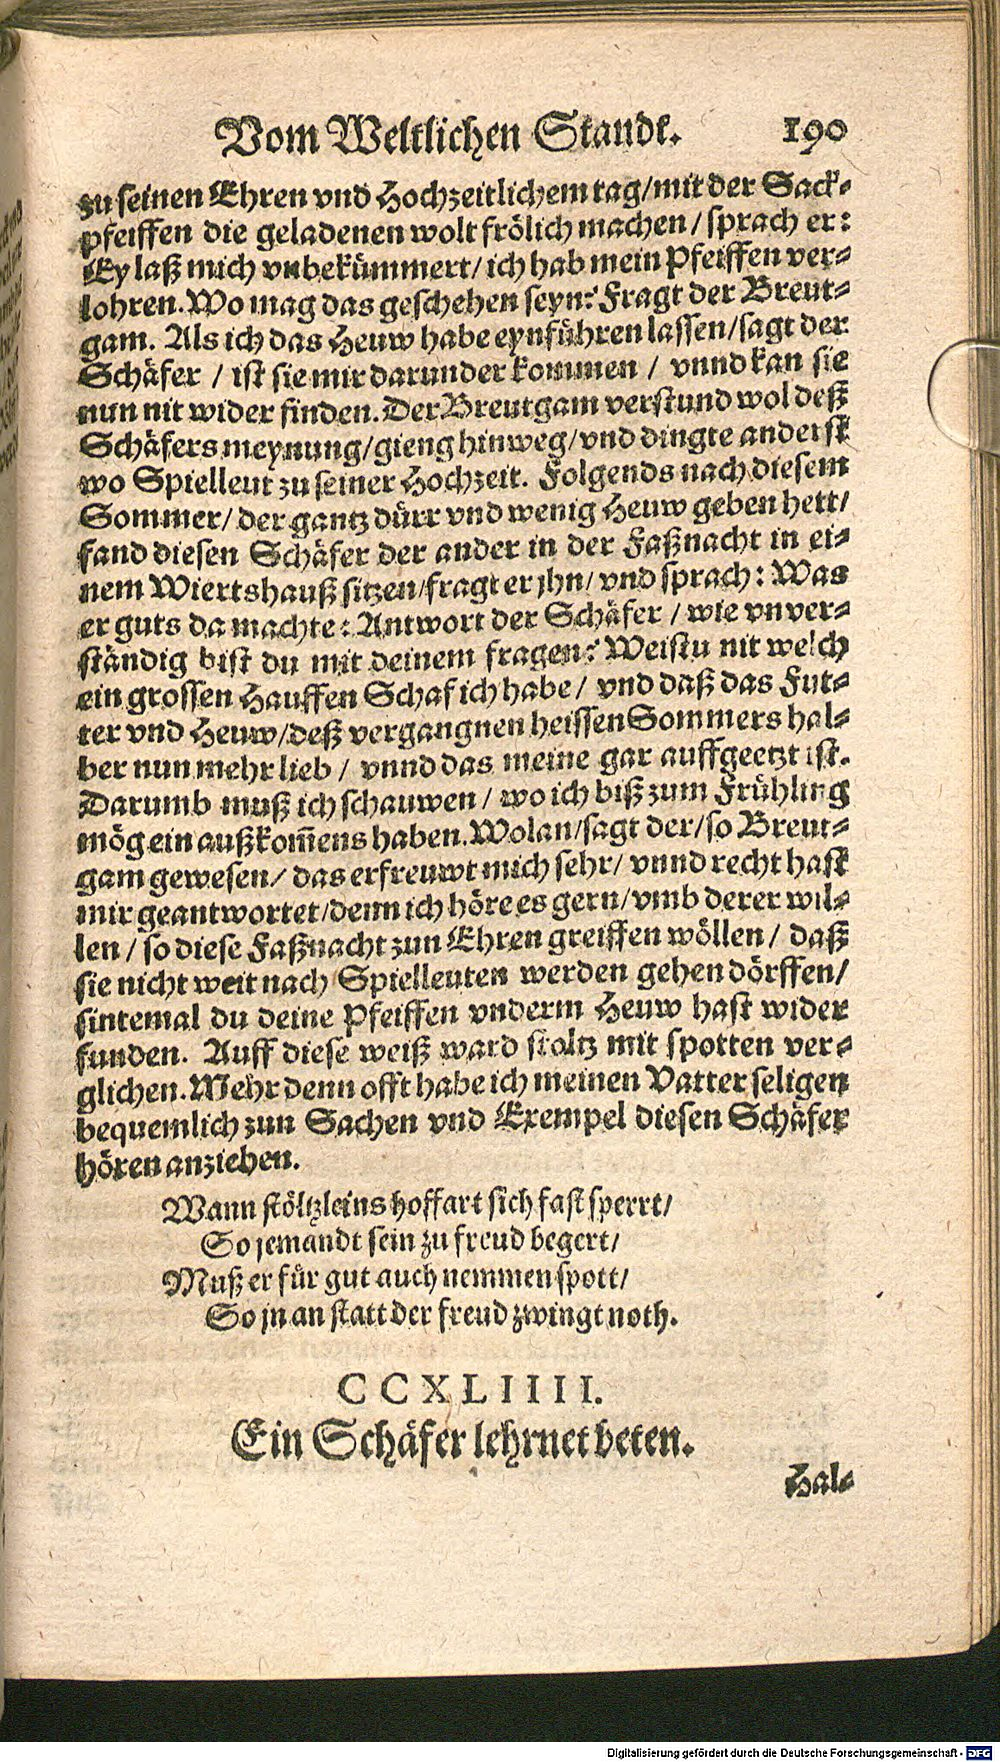 Vom Weltlichen Stande. 190
zu seinen Ehren vnd Hochzeitlichem tag/mit der Sack-
pfeiffen die geladenen wolt frölich machen/sprach er:
Ey laß mich vnbekümmert/ich hab mein Pfeiffen ver-
lohren. Wo mag das geschehen seyn? Fragt der Breut-
gam. Als ich das Heuw habe eynführen lassen/sagt der
Schäfer / ist sie mir darunder kommen / vnnd kan sie
nun nit wider finden. Der Breutgam verstund wol deß
Schäfers meynung/gieng hinweg/vnd dingte anderst
wo Spielleut zu seiner Hochzeit. Folgends nach diesem
Sommer/ der gantz dürr vnd wenig Heuw geben hett/
fand diesen Schäfer der ander in der Faßnacht in ei-
nem Wiertshauß sitzen/fragt er jhn/vnd sprach: Was
er guts da machte: Antwort der Schäfer / wie vnver-
ständig bist du mit deinem fragen? Weistu nit welch
ein grossen Hauffen Schaf ich habe/ vnd daß das Fut-
ter vnd Heuw/deß vergangnen heissen Sommers hal-
ber nun mehr lieb / vnnd das meine gar auffgeetzt ist.
Darumb muß ich schauwen / wo ich biß zum Frühling
mög ein außkom̃ens haben. Wolan/sagt der/so Breut-
gam gewesen/ das erfreuwt mich sehr/ vnnd recht hast
mir geantwortet/denn ich höre es gern/vmb derer wil-
len / so diese Faßnacht zun Ehren greiffen wöllen/ daß
sie nicht weit nach Spielleuten werden gehen dörffen/
sintemal du deine Pfeiffen vnderm Heuw hast wider
funden. Auff diese weiß ward stoltz mit spotten ver-
glichen. Mehr denn offt habe ich meinen Vatter seligen
bequemlich zun Sachen vnd Exempel diesen Schäfer
hören anziehen.
Wann stöltzleins hoffart sich fast sperrt/
So jemandt sein zu freud begert/
Muß er für gut auch nemmen spott/
So jn an statt der freud zwingt noth.
CCXLIIII.
Ein Schäfer lehrnet beten.
Hal-
Digitalisierung gefördert durch die Deutsche Forschungsgemeinschaft - DFG